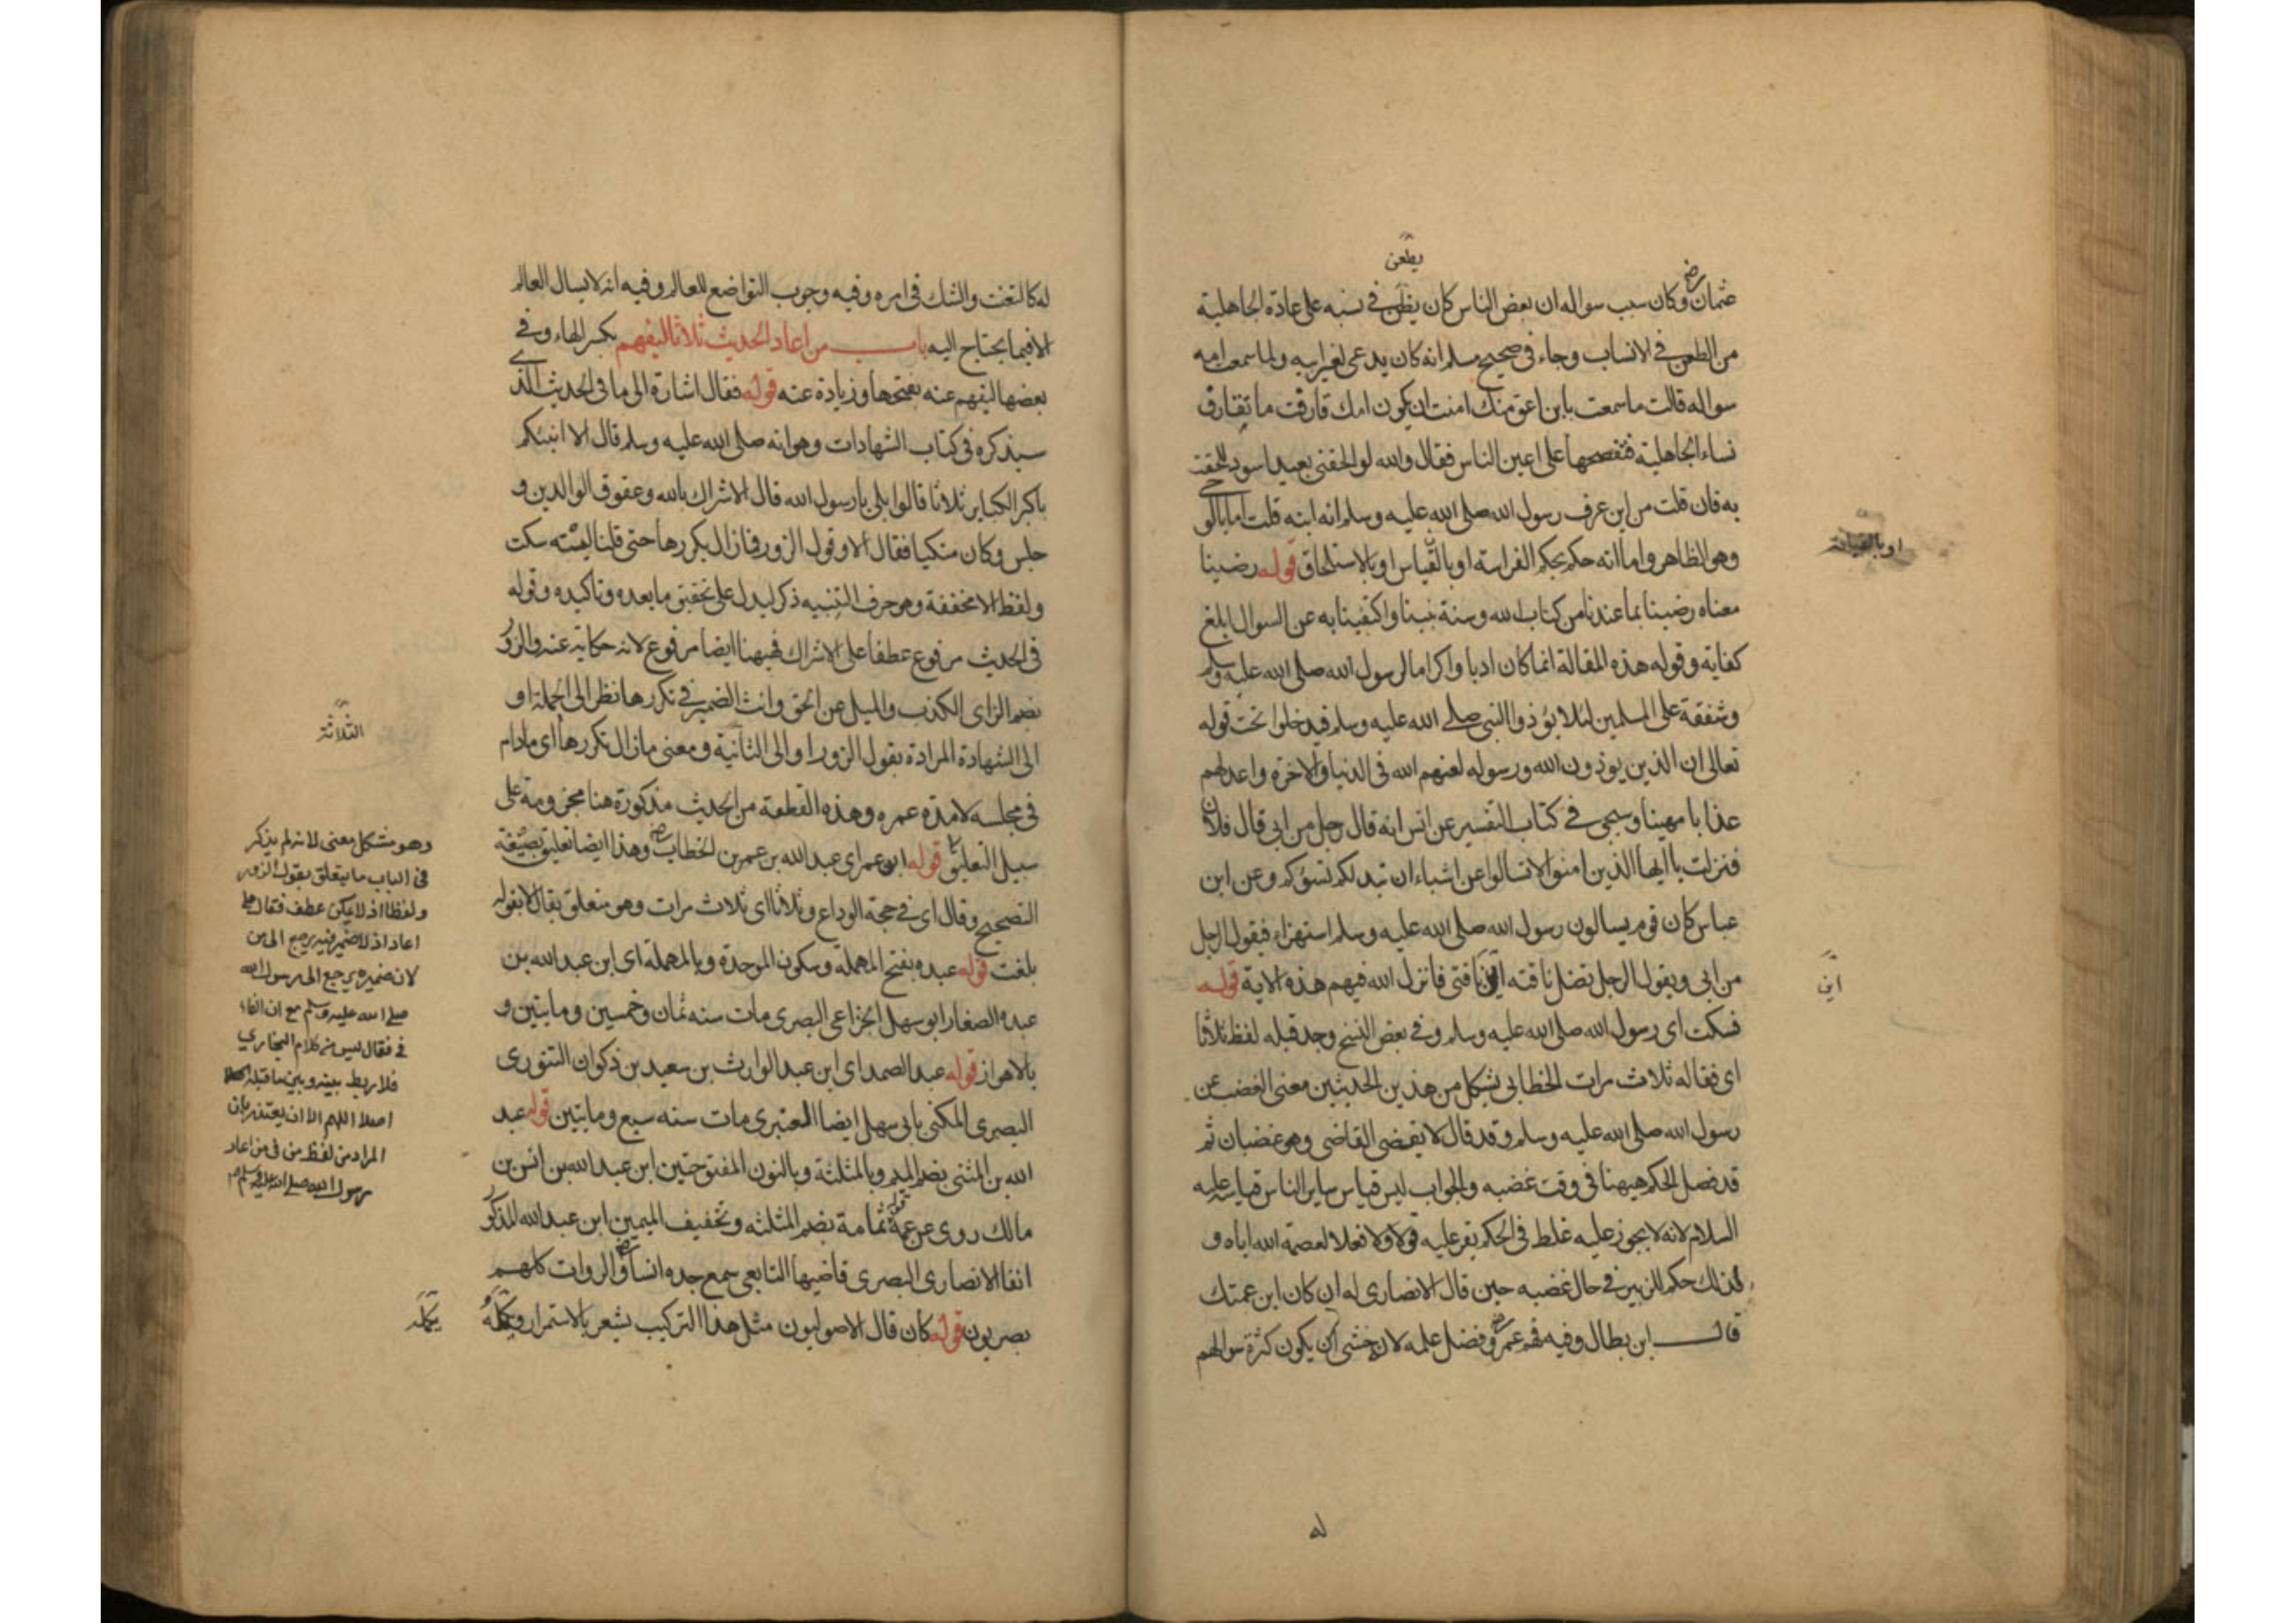 يطعن
عثمان رضي وكان سبب سواله ان بعض الناس كان يظن في نسبه على عادة الجاهلية
من الطعن في الانساب وجاء في صحيح مسلم انه كان يدعى لغير ابيه ولما سمعت امه
سواله قالت ما سمعت بابن اعق منك امنت ان يكون امك قارفت ما تقارف
نساء الجاهلية فتفضحها على اعين الناس فقال والله لو الحقني بعبد اسود للحقت
به فان قلت من اين عرف رسول الله صلى الله عليه وسلم انه ابنه قلت اما بالوحي
وهو الظاهر واما انه حكم بحكم الفراسة او بالقياس او بالاستلحاق قوله رضينا
او بالقيافة
معناه رضينا بما عندنا من كتاب الله وسنة نبينا واكتفينا به عن السوال ابلغ
كفاية وقوله هذه المقالة انما كان ادبا واكراما لرسول الله صلى الله عليه وسلم
وشفقة على المسلمين لئلا يؤذوا النبي صلى الله عليه وسلم فيدخلوا تحت قوله
تعالى ان الذين يوذون الله ورسوله لعنهم الله في الدنيا والاخرة واعد لهم
عذابا مهينا وسيجي في كتاب التفسير عن انس انه قال رجل من ابي قال فلان
فنزلت يا ايها الذين امنوا لا تسالوا عن اشياء ان تبد لكم تسؤكم وعن ابن
عباس كان قوم يسالون رسول الله صلى الله عليه وسلم استهزاء فيقول الرجل
من ابي ويقول الرجل تضل ناقته اين ناقتي فانزل الله فيهم هذه الاية قوله
اين
فسكت اي رسول الله صلى الله عليه وسلم وفي بعض النسخ وجد قبله لفظ ثلاثا
اي فقاله ثلاث مرات الخطابي يشكل من هذين الحديثين معنى الغضب عن
رسول الله صلى الله عليه وسلم وقد قال لا يقضي القاضي وهو غضبان ثم
قد فصل الحكم ههنا في وقت غضبه والجواب ليس قياس ساير الناس قياسه عليه
السلام لانه لا يجوز عليه غلط في الحكم يقر عليه قولا ولا فعلا لعصمة الله اياه و
لذلك حكم للزبير في حال غضبه حين قال الانصاري له ان كان ابن عمتك
قال ابن بطال وفيه فهم عمر رضي وفضل علمه لانه خشي ان يكون كثرة سوالهم
له
له كالتعنت والشك في امره وفيه وجوب التواضع للعالم وفيه انه لا يسال العالم
الا فيما يحتاج اليه باب من اعاد الحديث ثلاثا ليفهم بكسر الهاء وفي
بعضها ليفهم عنه بفتحها وزيادة عنه قوله فقال اشارة الى ما في الحديث الذي
سيذكره في كتاب الشهادات وهو انه صلى الله عليه وسلم قال الا انبئكم
باكبر الكباير ثلاثا قالوا بلى يا رسول الله قال الاشراك بالله وعقوق الوالدين و
جلس وكان متكيا فقال الا وقول الزور فما زال يكررها حتى قلنا ليته سكت
ولفظ الا مخففة وهو حرف التنبيه ذكر ليدل على تحقيق ما بعده وتاكيده وقوله
في الحديث مرفوع عطفا على الاشراك فههنا ايضا مرفوع لانه حكاية عنه والزور
بضم الزاي الكذب والميل عن الحق وانث الضمير في تكررها نظر الى الجملة او
الثلاثة
الى الشهادة المرادة بقول الزور او الى الثانية ومعنى ما زال تكررها اي مادام
في مجلسه لا مدة عمره وهذه القطعة من الحديث مذكورة هنا مجزومة على
سبيل التعليق قوله ابن عمر اي عبد الله بن عمر بن الخطاب رضي وهذا ايضا تعليق بصيغة
التصحيح وقال اي في حجة الوداع وثلاثا اي ثلاث مرات وهو متعلق بقال لا بقوله
بلغت قوله عبدة بفتح المهملة وسكون الموحدة وبالمهملة اي ابن عبد الله بن
عبدة الصفار ابو سهل الخزاعي البصري مات سنه ثمان وخمسين ومايتين و
بالاهواز قوله عبد الصمد اي ابن عبد الوارث بن سعيد بن ذكوان التنوري
البصري المكنى بابي سهل ايضا العنبري مات سنه سبع ومايتين قوله عبد
الله بن المثنى بضم الميم وبالمثلثة وبالنون المفتوحتين ابن عبد الله بن انس بن
مالك روى عن عمه قوله ثمامة بضم المثلثه وتخفيف الميمين ابن عبد الله المذكور
انفا الانصاري البصري قاضيها التابعي سمع جده انسا رضي والروات كلهم
بصريون قوله كان قال الاصوليون مثل هذا التركيب يشعر بالاستمرار وبكلمة
بكلمه
وهو مشكل معنى لانه لم يذكر
في الباب ما يتعلق بقول الزور
ولفظا اذ لا يمكن عطف فقال على
اعاد اذ لا ضمير فيه يرجع الى من
لان ضميره يرجع الى رسول الله
صلى الله عليه وسلم مع ان الفاء
في فقال ليس من كلام البخاري
فلا ربط بينه وبين ما قبله
اصلا اللهم الا ان يعتذر بان
المراد من لفظ من في من اعاد
رسول الله صلى الله عليه وسلم